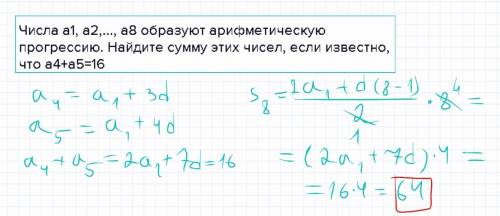 Числа a1, a2,..., a8 образуют арифметическую
прогрессию. Найдите сумму этих чисел, если известно,
что a4+a5=16
a₄ = a₁ + 3d
a₅ = a₁ + 4d
a₄ + a₅ = 2a₁ + 7d = 16
S₈ = (2a₁ + d(8-1))/2 · 8 =
4
1
= (2a₁ + 7d) · 4 =
= 16 · 4 = 64